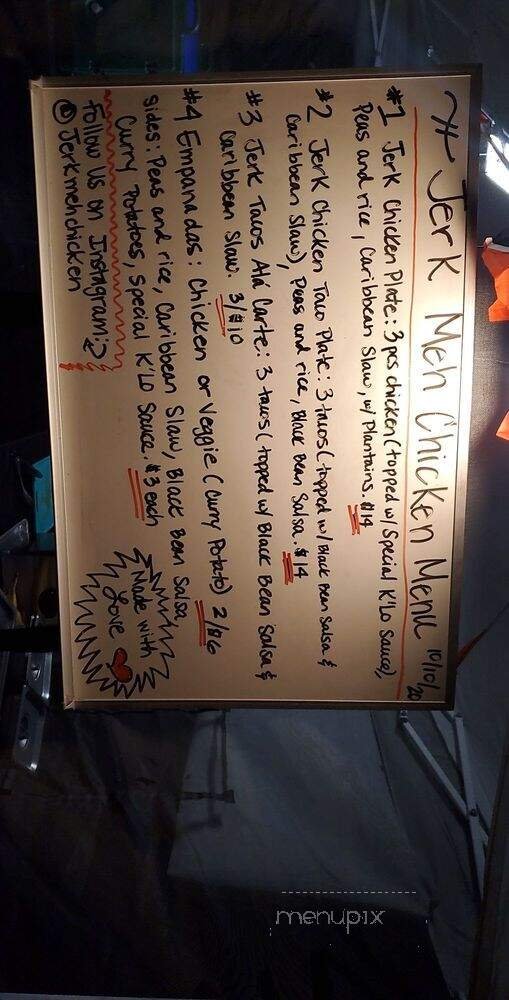 Jerk Meh Chicken Menu 10/10/20
#1 Jerk Chicken Plate: 3 pcs chicken (topped w/ Special K'Lo Sauce),
Peas and rice, Caribbean Slaw, w/ Plantains. $14
#2 Jerk Chicken Taco Plate: 3 tacos (topped w/ Black Bean Salsa &
Caribbean Slaw), Peas and rice, Black Bean Salsa. $14
#3 Jerk Tacos Alá Carte: 3 tacos (topped w/ Black Bean Salsa &
Caribbean Slaw. 3/$10
#4 Empanadas: Chicken or Veggie (Curry Potato) 2/$6
Sides: Peas and rice, Caribbean Slaw, Black Bean Salsa,
Curry Potatoes, Special K'LO Sauce. $3 each
Follow us on Instagram:
@Jerkmehchicken
Made with
Love
menupix